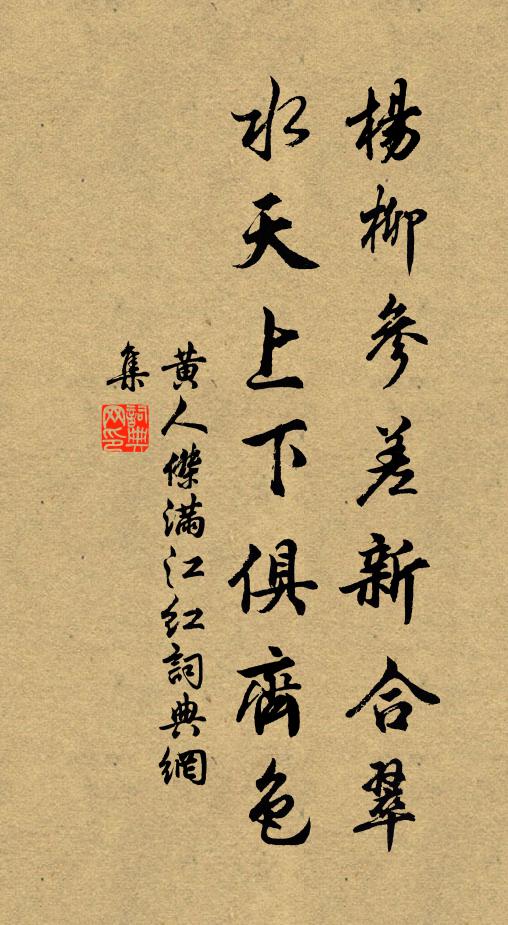 楊柳參差新合翠
水天上下俱齊色
黄人傑滿江红詞典網
集
詞典网印